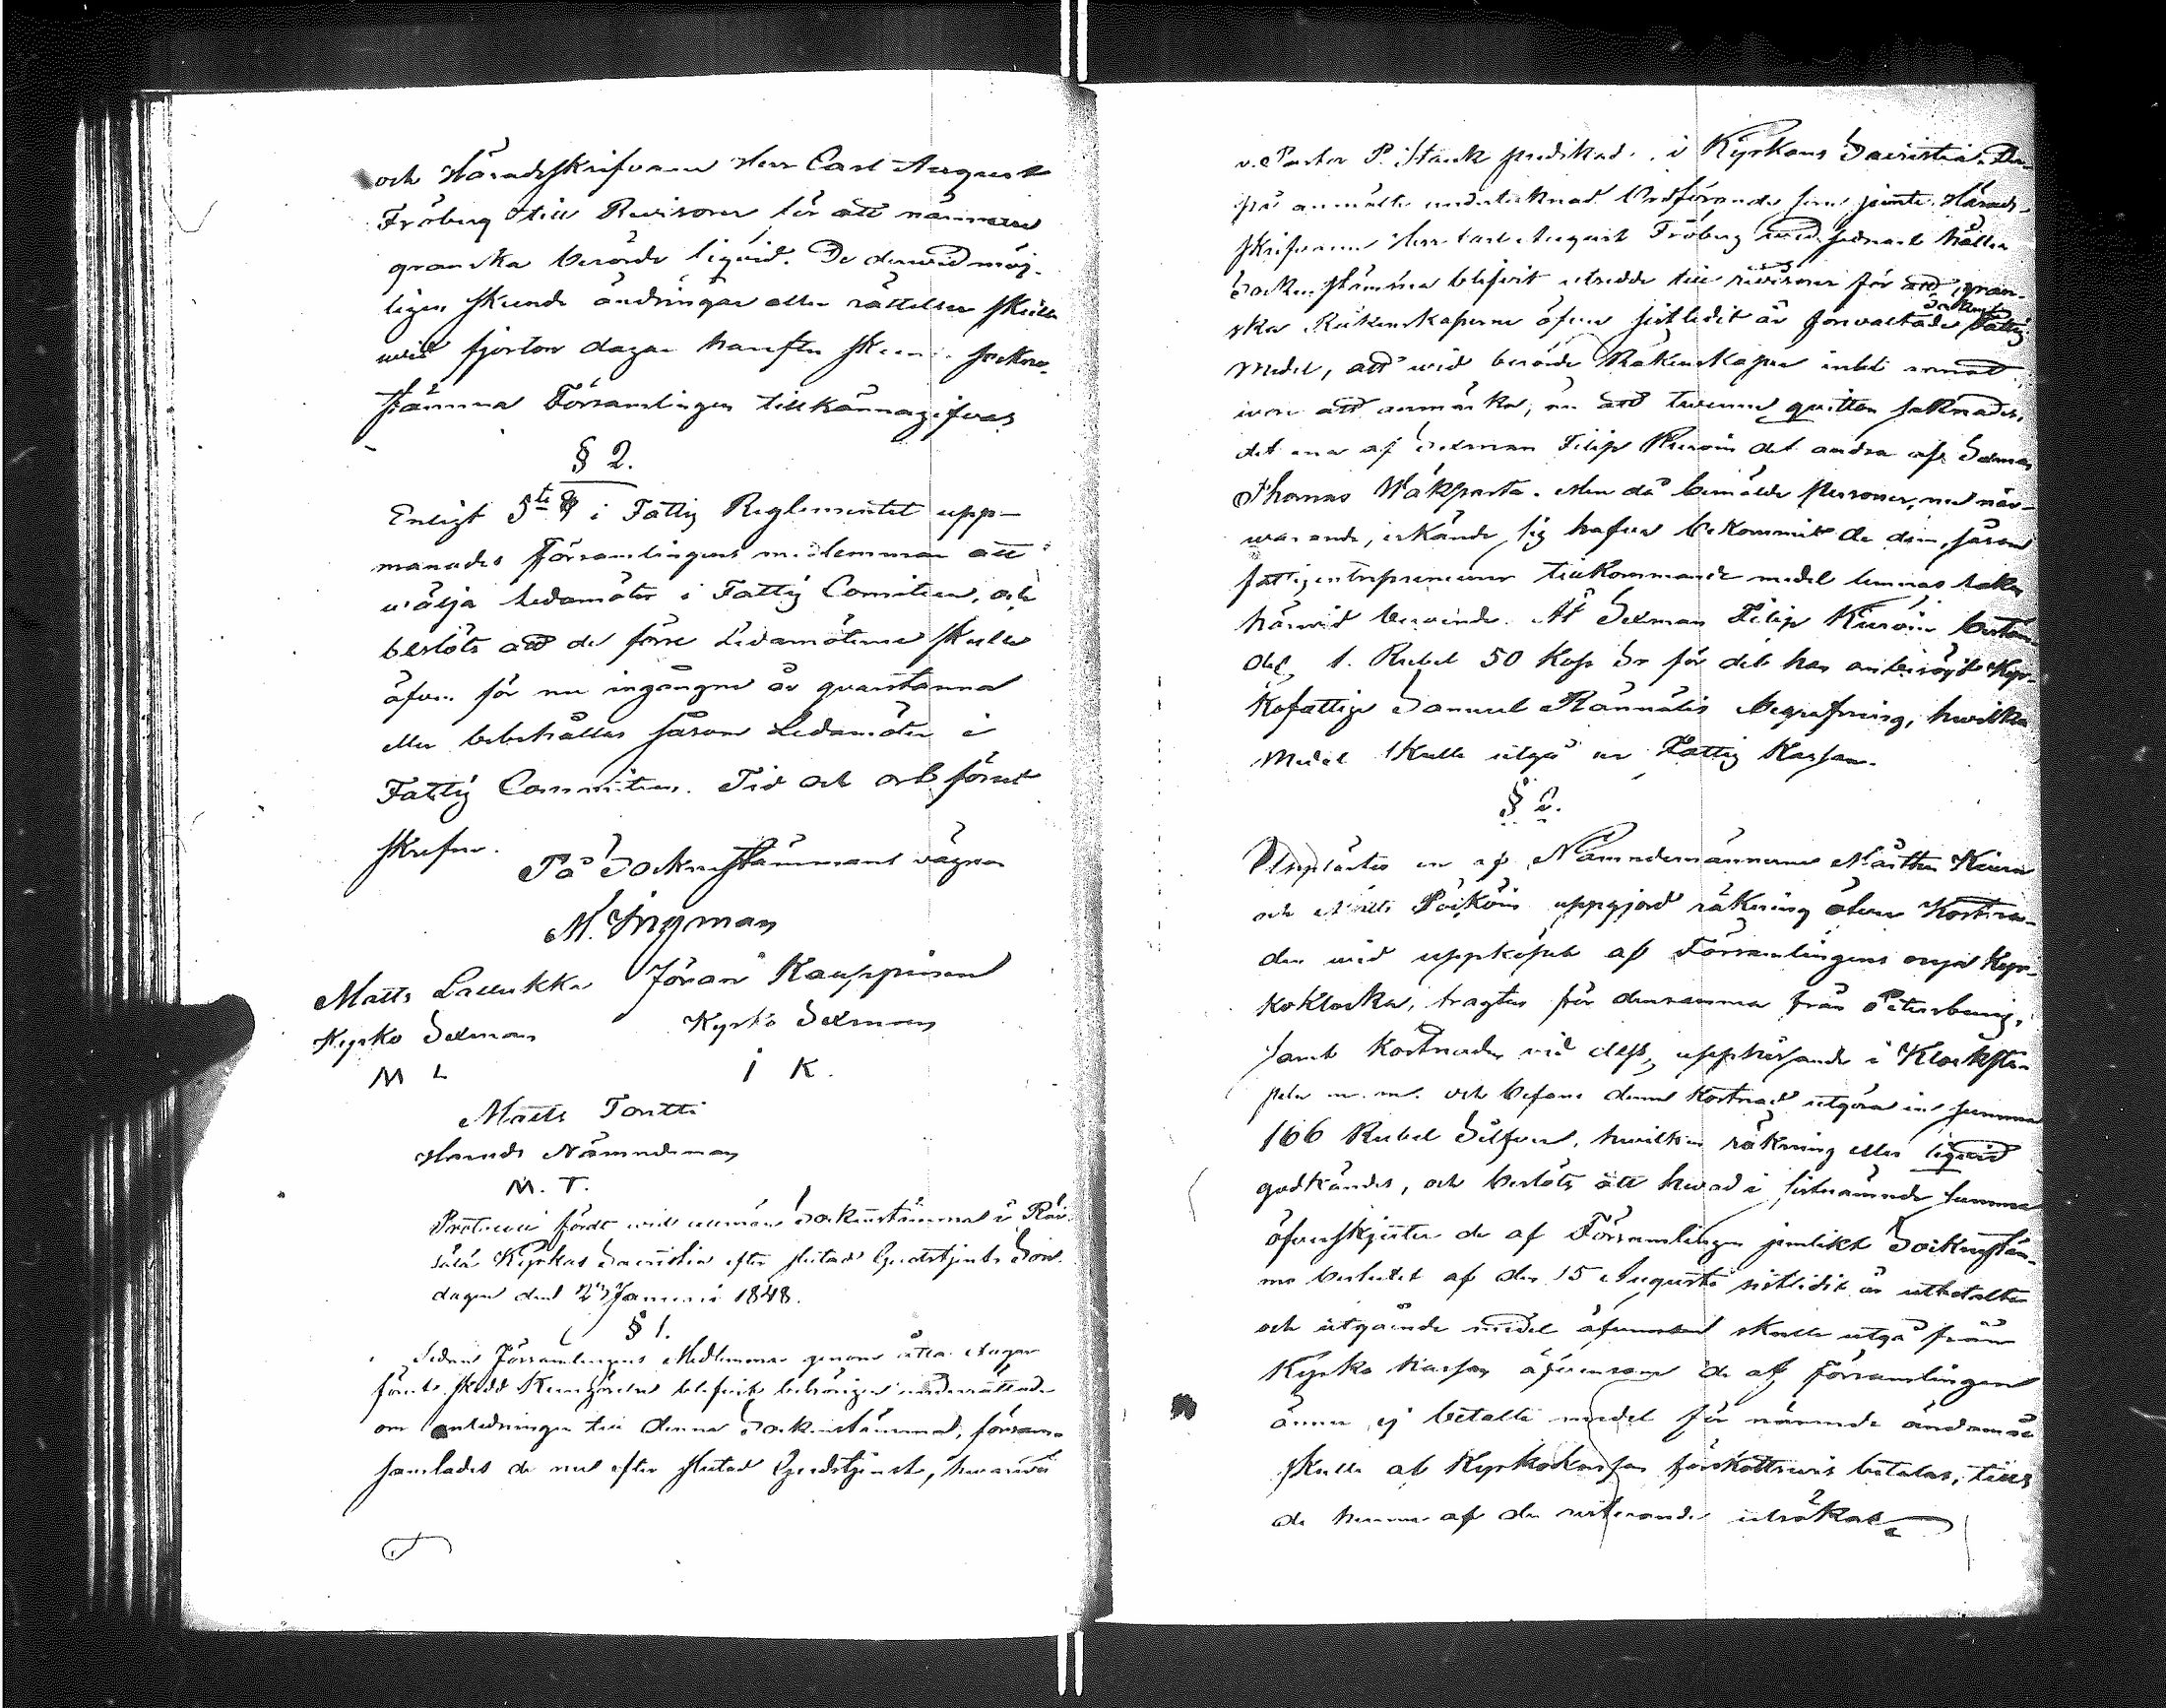 och Häradsskrifvaren Herr Carl August
Fröberg till Revisorer för att närmare
granska berörde liqvid. De derwid möj-
ligen skeende ändringar eller rättelser skulle
wid fjorton dagar härefter skeende sockne-
stämma Församlingen tillkännagifvas
§ 2.
Enligt 5te § i Fattig Reglementet upp-
manades Församlingens medlemmar att
wälja Ledamöter i Fattig Comiteen, och
beslöts att de förre Ledamöterne skulle
äfven för nu ingångne år qvarstanna
eller bibehållas såsom Ledamöter i
Fattig Committeen. Tid och ort förut
skrefne.
På Socknestämmans vägnar
M. Ingman
Matts Lallukka Jöran Kauppinen
Kyrko Sexman Kyrko Sexman
M L I K.
Matts Tontti
Härads Nämndeman
M. T.
Protocoll fördt wid allmän Sockenstämma i Räi-
sälä Kyrkas Sacristia efter slutad Gudstjenst Sön-
dagen den 23 Januarii 1848.
§ 1.
Sedan Församlingens Medlemmar genom åtta dagar
förut skedd Kungörelse blifvit behörigen underrättade
om anledningen till denna Sockenstämma, försam-
samlades de nu efter slutad Gudstjenst, hwarwid
v. Pastor P. Stauk predikade, i Kyrkans Sacristia. Der-
på anmälte undertecknad Ordförande som jemte Härads-
skrifvaren Herr Carl August Fröberg wid sednast hållen
Sockenstämma blifvit utsedde till revisorer för att gran-
ska Räkenskaperne öfver sistledit år förvaltade Socknens Fattig
Medel, att wid berörde Räkenskaper intet annat
wore att anmärka, än att twenne qvitton saknades,
det ena af Sexman Filip Kiuru det andra af Sexman
Thomas Wäkiparta. Men då bemälde personer, nu när-
warande, erkände sig hafva bekommit de dem, såsom
fattigentrepreneurer tillkommande medel lemnas saken
härwid beroende. Åt Sexman Filip Kiuru bestods
och 1. Rubel 50 Kop Sr för det han ombesörjt Kyr-
kofattige Samuel Rännälis begrafning, hwilka
Medel skulle utgå ur Fattig Kassan.
§ 2.
Upplästes en af Nämndemännerne Mårten Kiuru
och Matts Pöikön uppgjord räkning öfver Kostna-
den wid uppköpet af Församlingens nya Kyr-
koklocka, fragten för densamma från Petersburg,
samt kostnaden wid dess upphissande i Klocksta-
peln m. m. och befans denne kostnad utgöra in summa
166 Rubel Silfver, hwilken räkning eller liqvid
godkändes, och beslöts att hwad i sistnämnde summa
öfverskjuter de af Församlingen jemlikt Sockenstäm-
mo beslutet af den 15 Augusti sistledit år utbetalte
och utgående medel äfwensom skulle utgå från
Kyrko kassan äfvensom de af Församlingen
ännu ej betalte medel för nämnde ändamål
skulle af Kyrkokassan förskottsvis betalas, tills
de hunne af de resterande utsökas